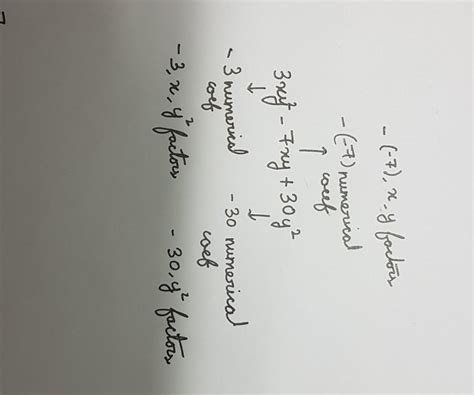 - (-7), x, y factors
- (-7) numerical
coef
↑
3xy² - 7xy + 30y²
↓ ↓
- 3 numerical - 30 numerical
coef coef
- 3, x, y² factors - 30, y² factors